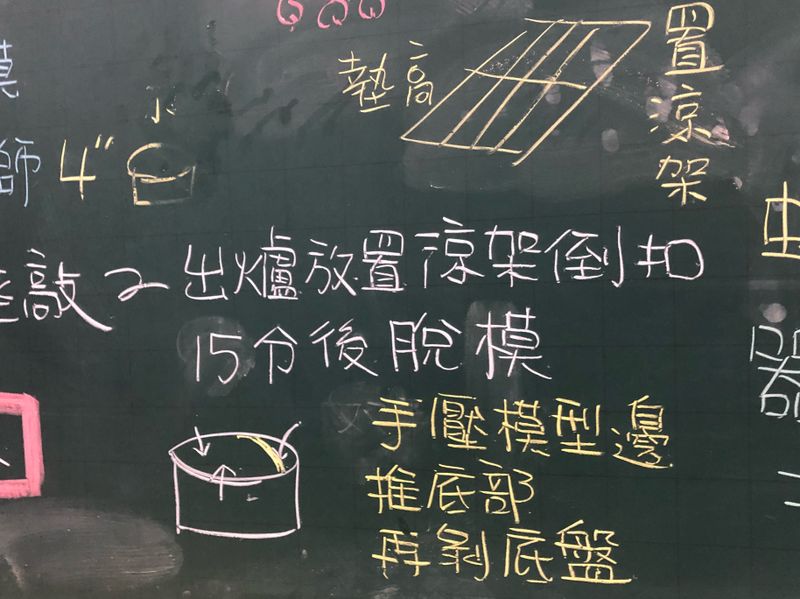 墊高
置涼架
師 4"
敲 2 出爐放置涼架倒扣
15分後脫模
手壓模型邊
推底部
再剝底盤
器